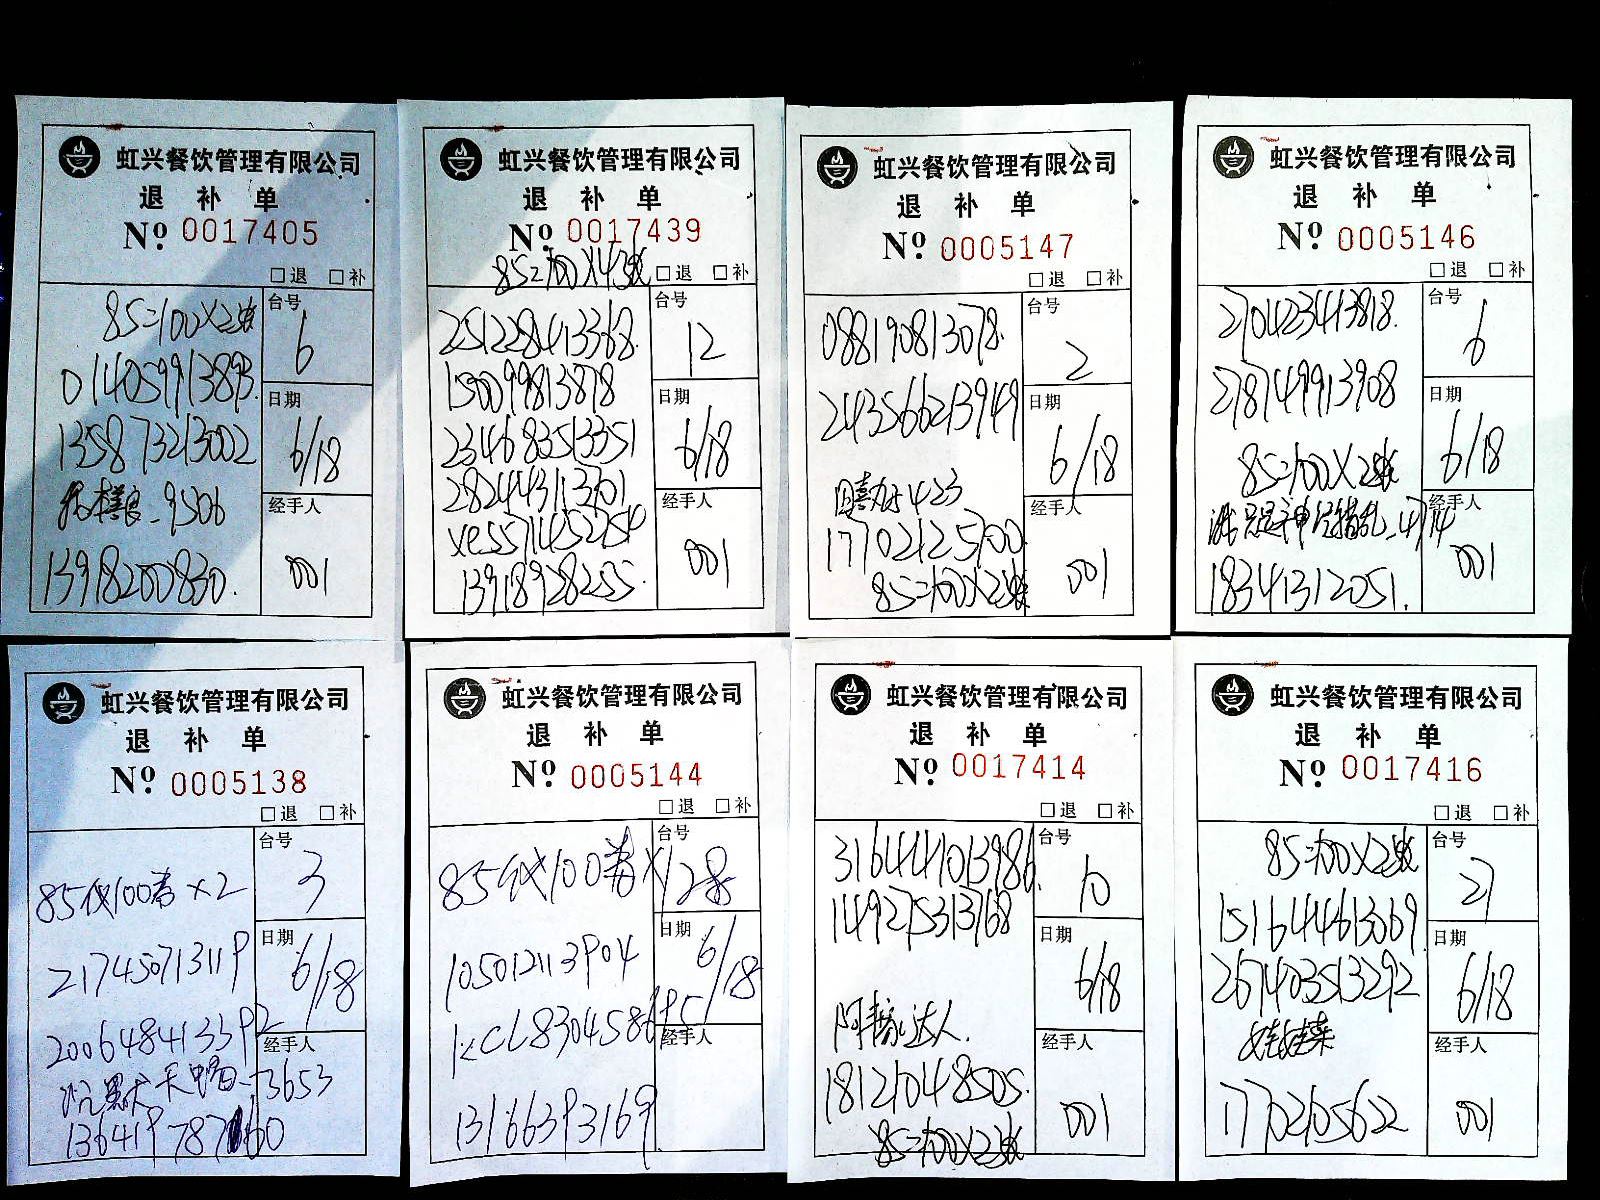 虹兴餐饮管理有限公司
退 补 单
Nº. 0017405
□退 □补
85=100X2张
台号
6
014059913893.
日期
6/18
135873213002
9506
经手人
001
13918200830.
虹兴餐饮管理有限公司
退 补 单
Nº. 0017439
85=100X4张
□退 □补
台号
12
251228413368.
150099813878
日期
6/18
234683513351
2824443113701
经手人
001
xe5571452254
13918928255.
虹兴餐饮管理有限公司
退 补 单
Nº. 0005147
□退 □补
台号
2
088190813078.
243566213949
日期
6/18
423
经手人
001
17702125700.
85=100X2张
虹兴餐饮管理有限公司
退 补 单
Nº. 0005146
□退 □补
台号
6
270423413818.
278749913908
日期
6/18
85=100X2张
总是神经错乱_4714
经手人
001
18341312051.
虹兴餐饮管理有限公司
退 补 单
Nº. 0005138
□退 □补
台号
3
85代100券×2
217450713119
日期
6/18
200648413392
经手人
沉默天_3653
虹兴餐饮管理有限公司
退 补 单
Nº. 0005144
□退 □补
台号
28
85代100券X1
105012113904
日期
6/18
KCL830458695
经手人
13166393169
虹兴餐饮管理有限公司
退 补 单
Nº. 0017414
□退 □补
台号
10
316444013986.
149275313168
日期
6/18
达人.
经手人
001
18121048505.
85=100X2张
虹兴餐饮管理有限公司
退 补 单
Nº. 0017416
□退 □补
85=100X2张
台号
21
151644613069.
日期
6/18
261403513292
娃娃菜
经手人
001
17702105622